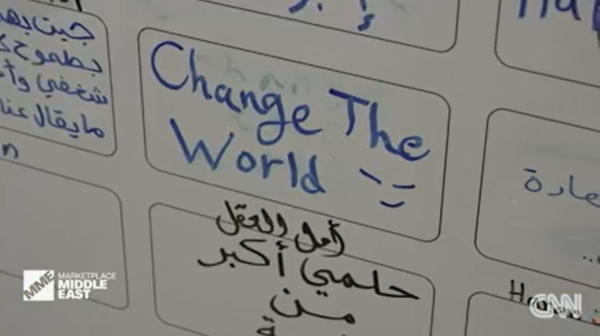 جيت بهد
بطموح ك
شغفي وأ
ما يقال عنا
Change The
World
عادة
أمل العقل
حلمي أكبر
من
MME
MARKETPLACE
MIDDLE
EAST
CNN